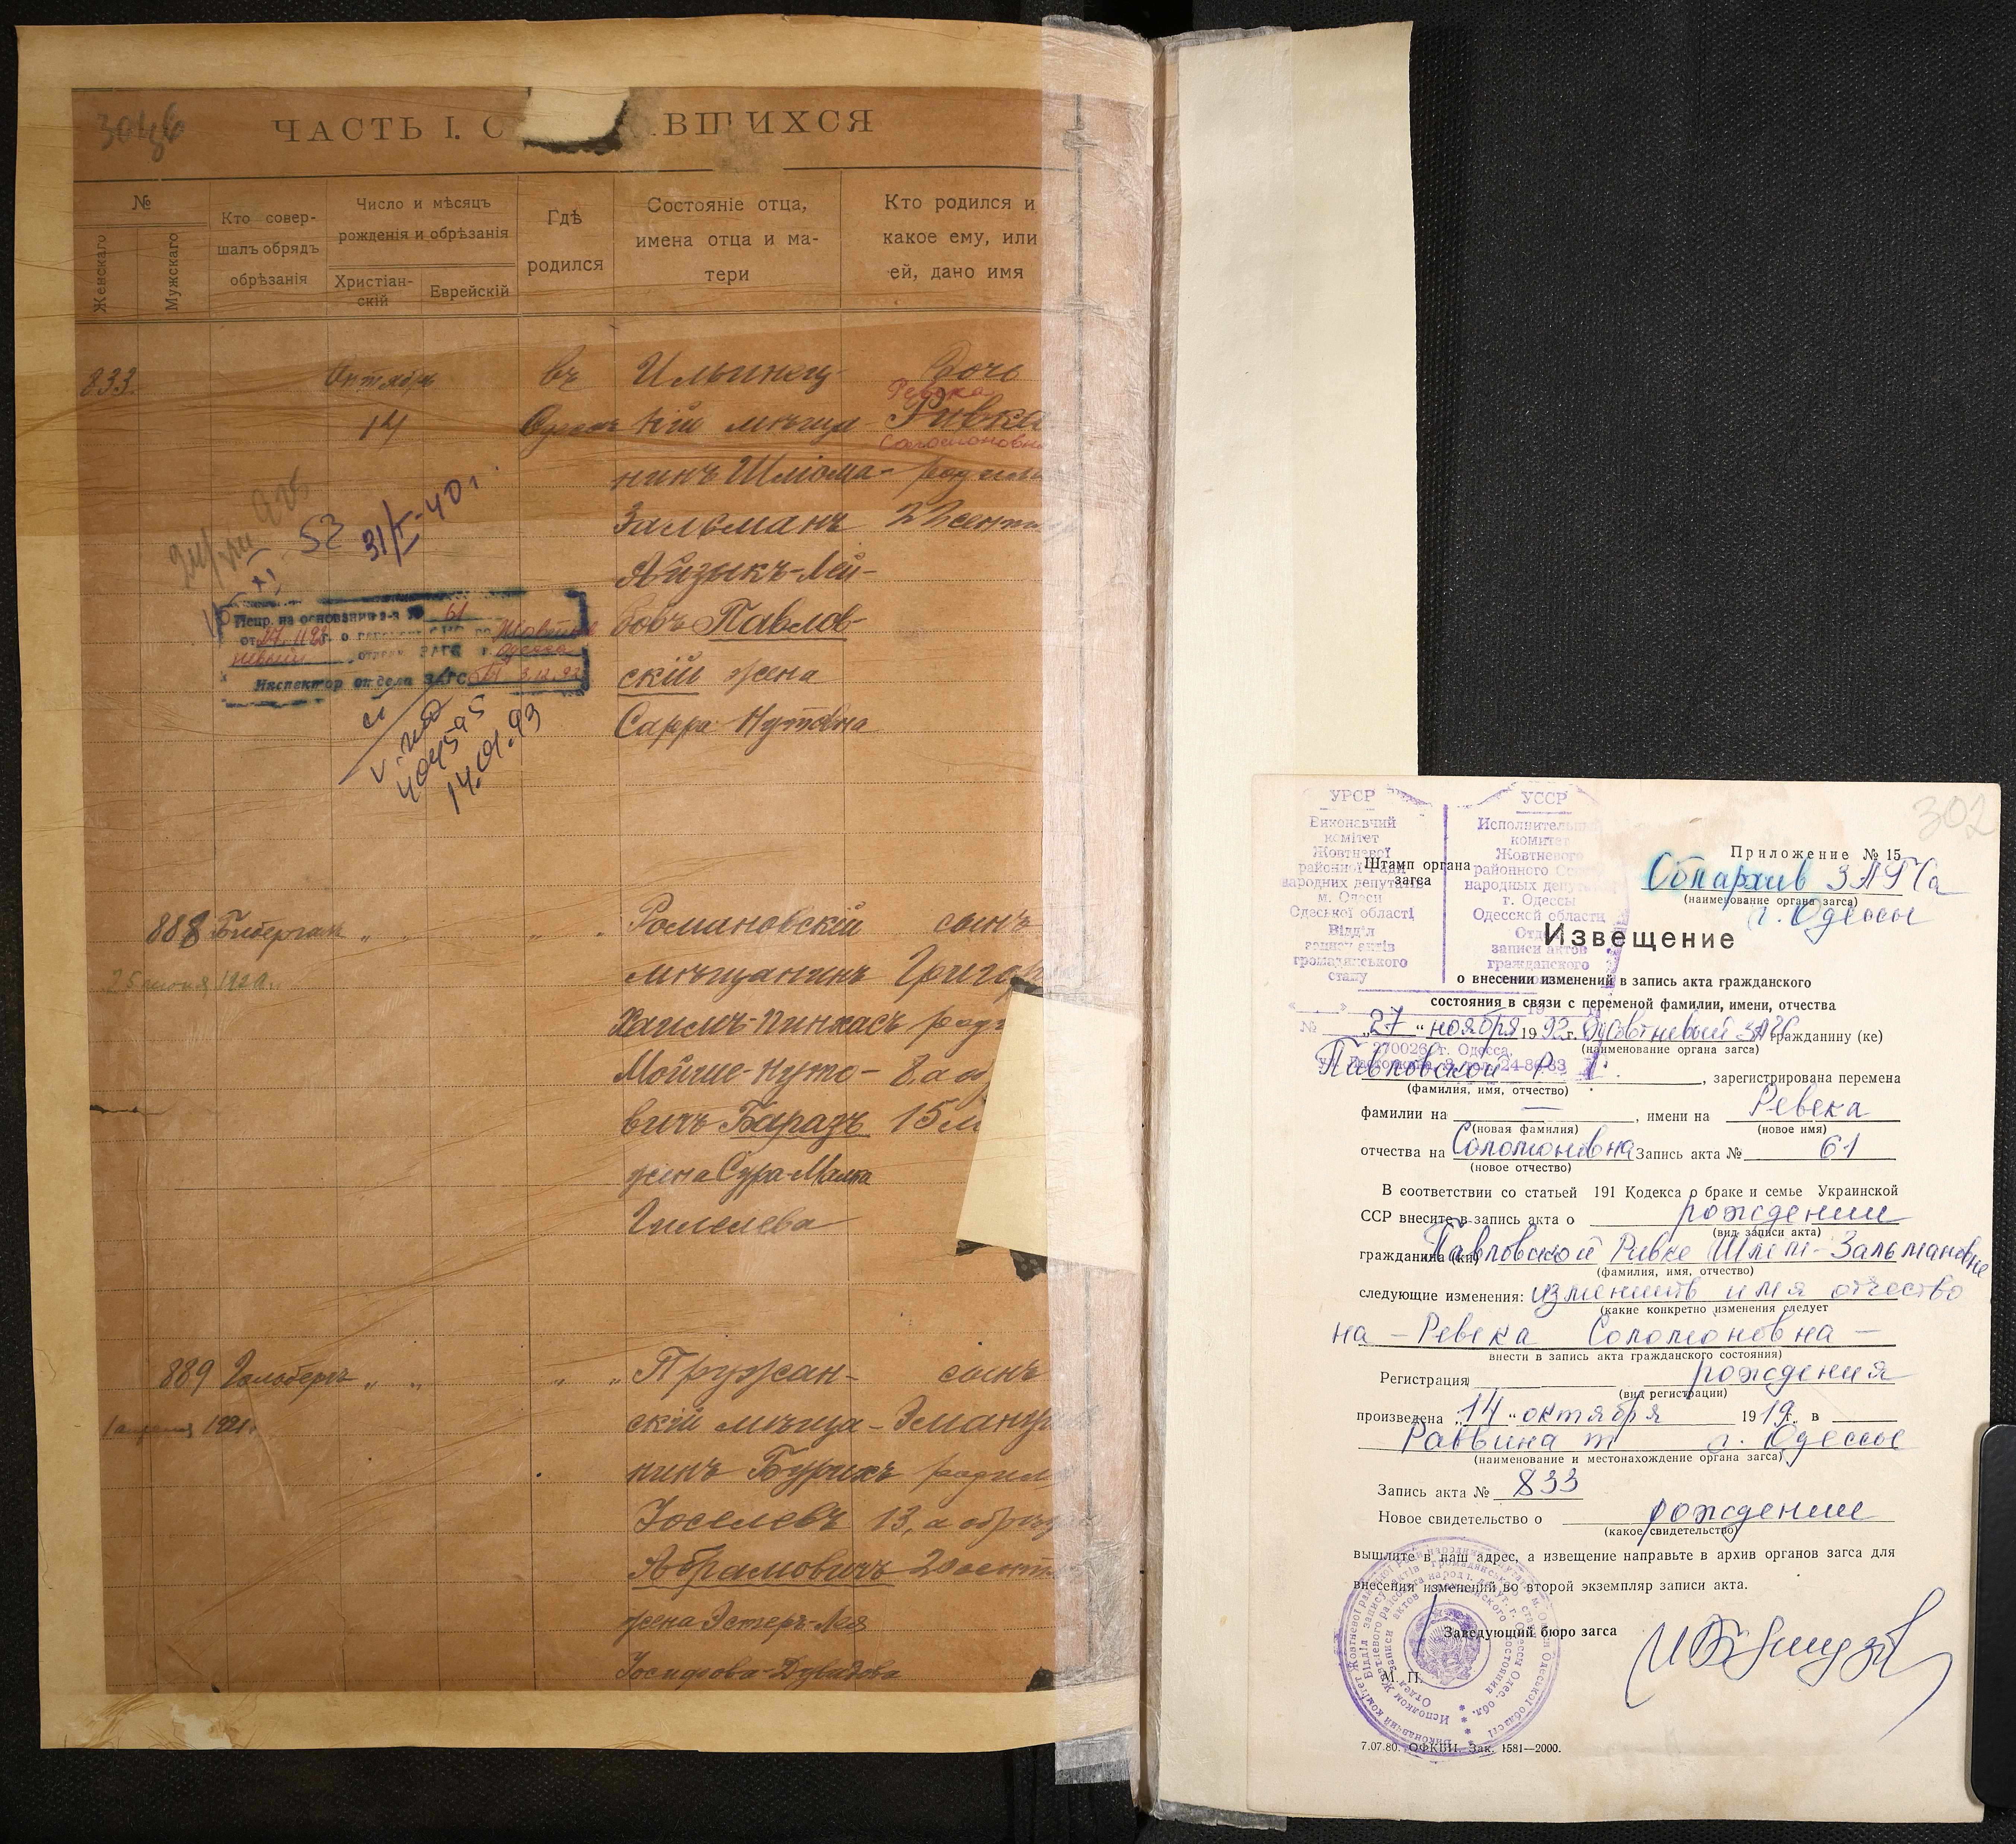 ЧАСТЬ I. О ВШИХСЯ
№
Женскаго
Мужскаго
Кто совер-
шалъ обрядъ
обрѣзанія
Число и мѣсяцъ
рожденія и обрѣзанія
Христіан-
скій
Еврейскій
Гдѣ
родился
Состояніе отца,
имена отца и ма-
тери
Кто родился и
какое ему, или
ей, дано имя
833.
Октябрь
14
въ
Ильинец-
кій мѣща-
нинъ Шліома-
Зальманъ
Айзыкъ-Лей-
бовъ Павлов-
скій жена
Сарра Нутовна
Дочь
Ревека
Ривка
Соломоновна
22 сент
52
31/I-40 г.
Испр. на основании з-я № 61
Инспектор отдела ЗАГС
404595
14.01.93
888
25 июня 1920 г.
Романовскій
мѣщанинъ
Хаимъ-Пинхасъ
Мойше-Нуто-
вичъ Баразъ
жена Сура-Малка
Гилелева
сынъ
Григо
8, а об
889
1921 г.
Пружан-
скій мѣща-
нинъ Бурихъ
Іоселевъ
Абрамовичъ
жена Эстеръ-Лея
Іосифова-Дувидова
сынъ
Эмануи
13, а обрѣз
20 сент
302
УРСР
Виконавчий
комітет
Жовтневої
районної Ради
народних депутатів
м. Одеси
Одеської області
Відділ
запису актів
громадянського
стану
УССР
Исполнительный
комитет
Жовтневого
районного Совета
народных депутатов
г. Одессы
Одесской области
Отдел
записи актов
гражданского
Штамп органа
загса
Приложение № 15
Облархив ЗАГСа
(наименование органа загса)
г. Одессы
Извещение
о внесении изменений в запись акта гражданского
состояния в связи с переменой фамилии, имени, отчества
„27“ ноября 1992 г. Жовтневый ЗАГС гражданину (ке)
(наименование органа загса)
270026, г. Одесса,
Павловской Р. Г.
(фамилия, имя, отчество)
, зарегистрирована перемена
фамилии на — , имени на Ревека
(новая фамилия) (новое имя)
отчества на Соломоновна Запись акта № 61
(новое отчество)
В соответствии со статьей 191 Кодекса о браке и семье Украинской
ССР внесите в запись акта о рождении
(вид записи акта)
гражданина (ки) Павловской Ривке Шлем-Зальмановне
(фамилия, имя, отчество)
следующие изменения: изменить имя отчество
(какие конкретно изменения следует
на – Ревека Соломоновна –
внести в запись акта гражданского состояния)
Регистрация рождения
(вид регистрации)
произведена „14“ октября 1919 г. в
Раввинат г. Одессы
(наименование и местонахождение органа загса)
Запись акта № 833
Новое свидетельство о рождении
(какое свидетельство)
вышлите в наш адрес, а извещение направьте в архив органов загса для
внесения изменений во второй экземпляр записи акта.
Заведующий бюро загса
М. П.
7.07.80. ОФКБИ. Зак. 1581—2000.